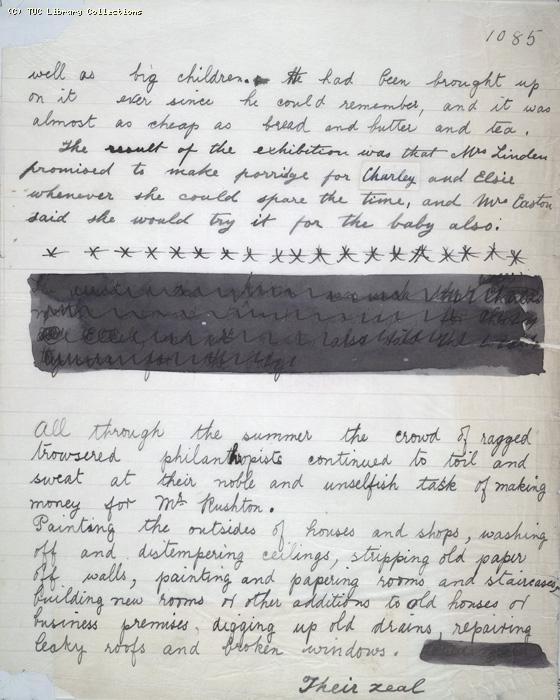 (C) TUC Library Collections
1085
well as big children. He had been brought up
on it ever since he could remember, and it was
almost as cheap as bread and butter and tea.
The result of the exhibition was that Mrs Linden
promised to make porridge for Charley and Elsie
whenever she could spare the time, and Mrs Easton
said she would try it for the baby also.
All through the summer the crowd of ragged
trowsered philanthropists continued to toil and
sweat at their noble and unselfish task of making
money for Mr Rushton.
Painting the outsides of houses and shops, washing
off and distempering ceilings, stripping old paper
off walls, painting and papering rooms and staircases,
building new rooms or other additions to old houses or
business premises, digging up old drains, repairing
leaky roofs and broken windows.
Their zeal